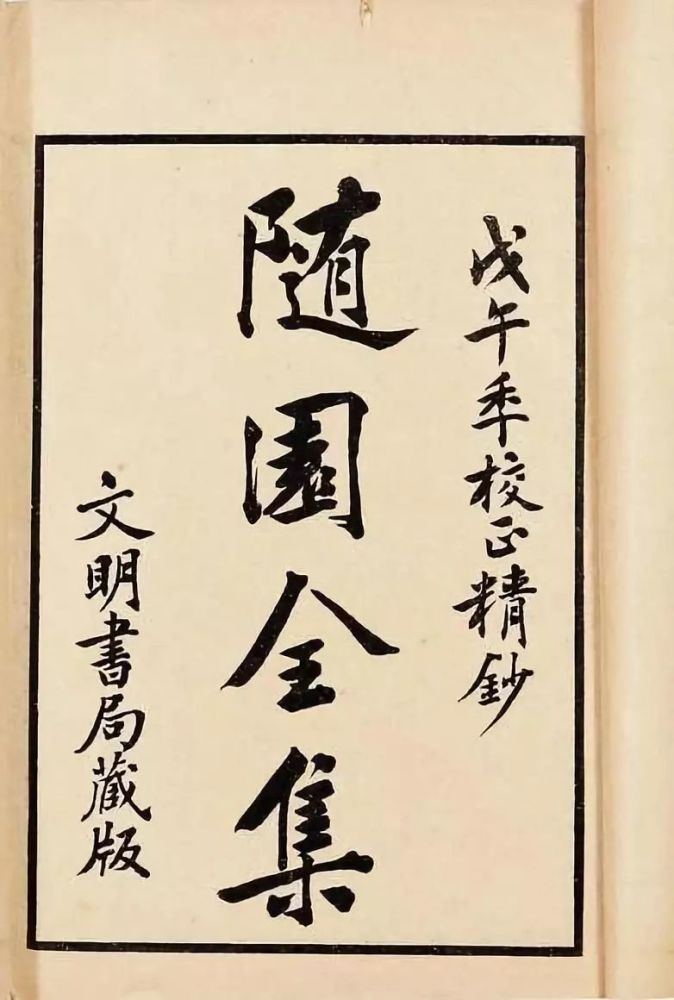 戊午年校正精鈔
随園全集
文明書局蔵版